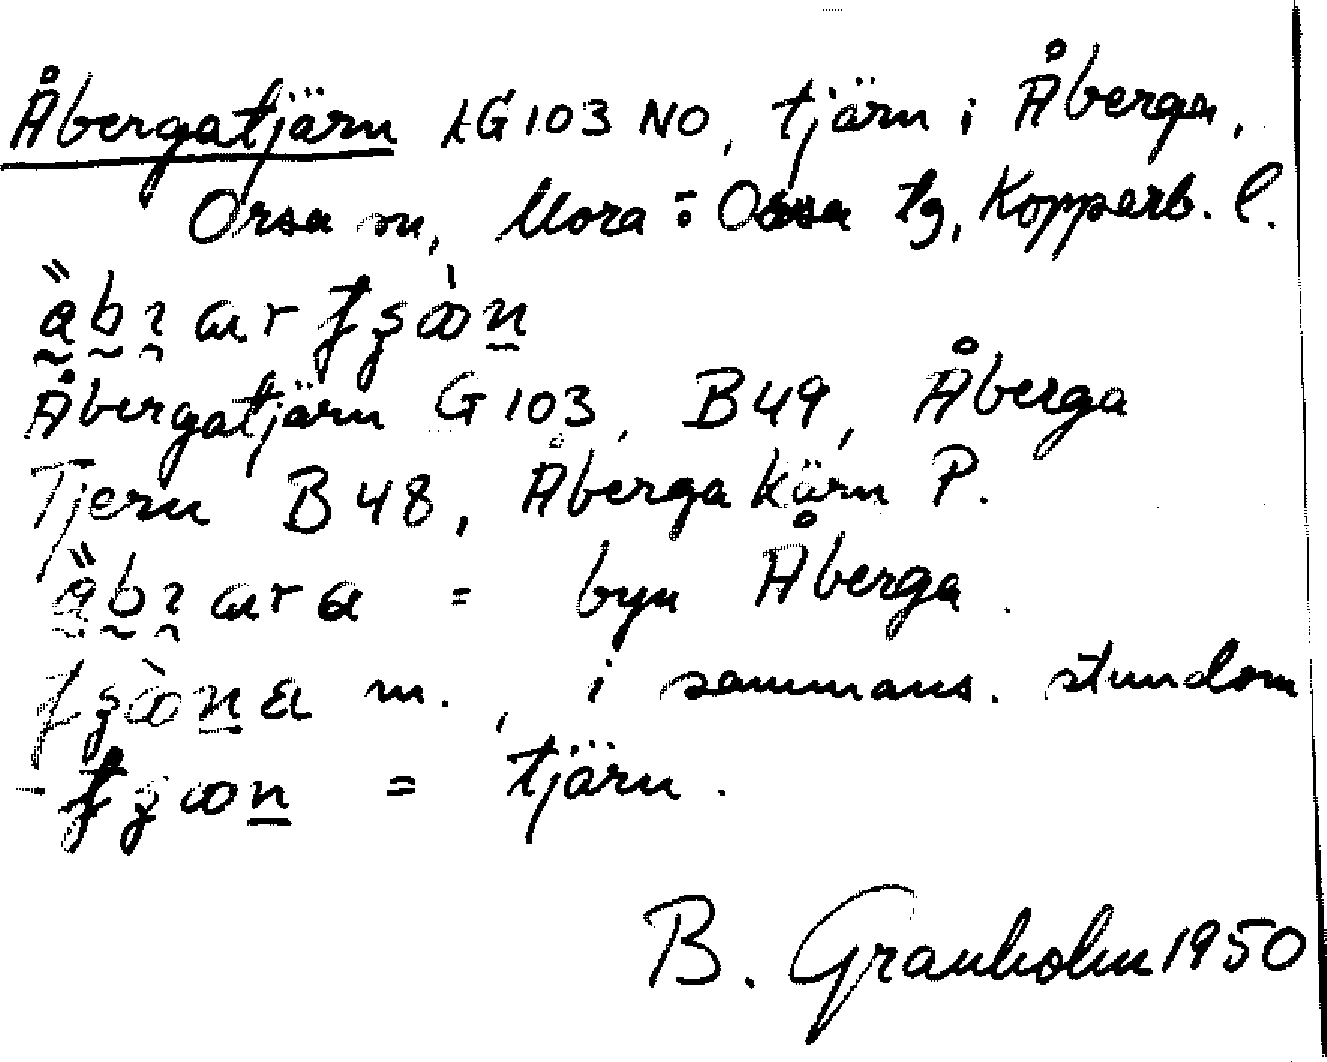 Åbergatjärn LG103 NO, tjärn i Åberga,
Orsa sn, Mora o Orsa tg, Kopparb. l.
Åbergatjärn G103, B49, Åberga
Tjern B48, Åbergakärn P.
= byn Åberga.
m., i sammans. stundom
= tjärn.
B. Granholm 1950